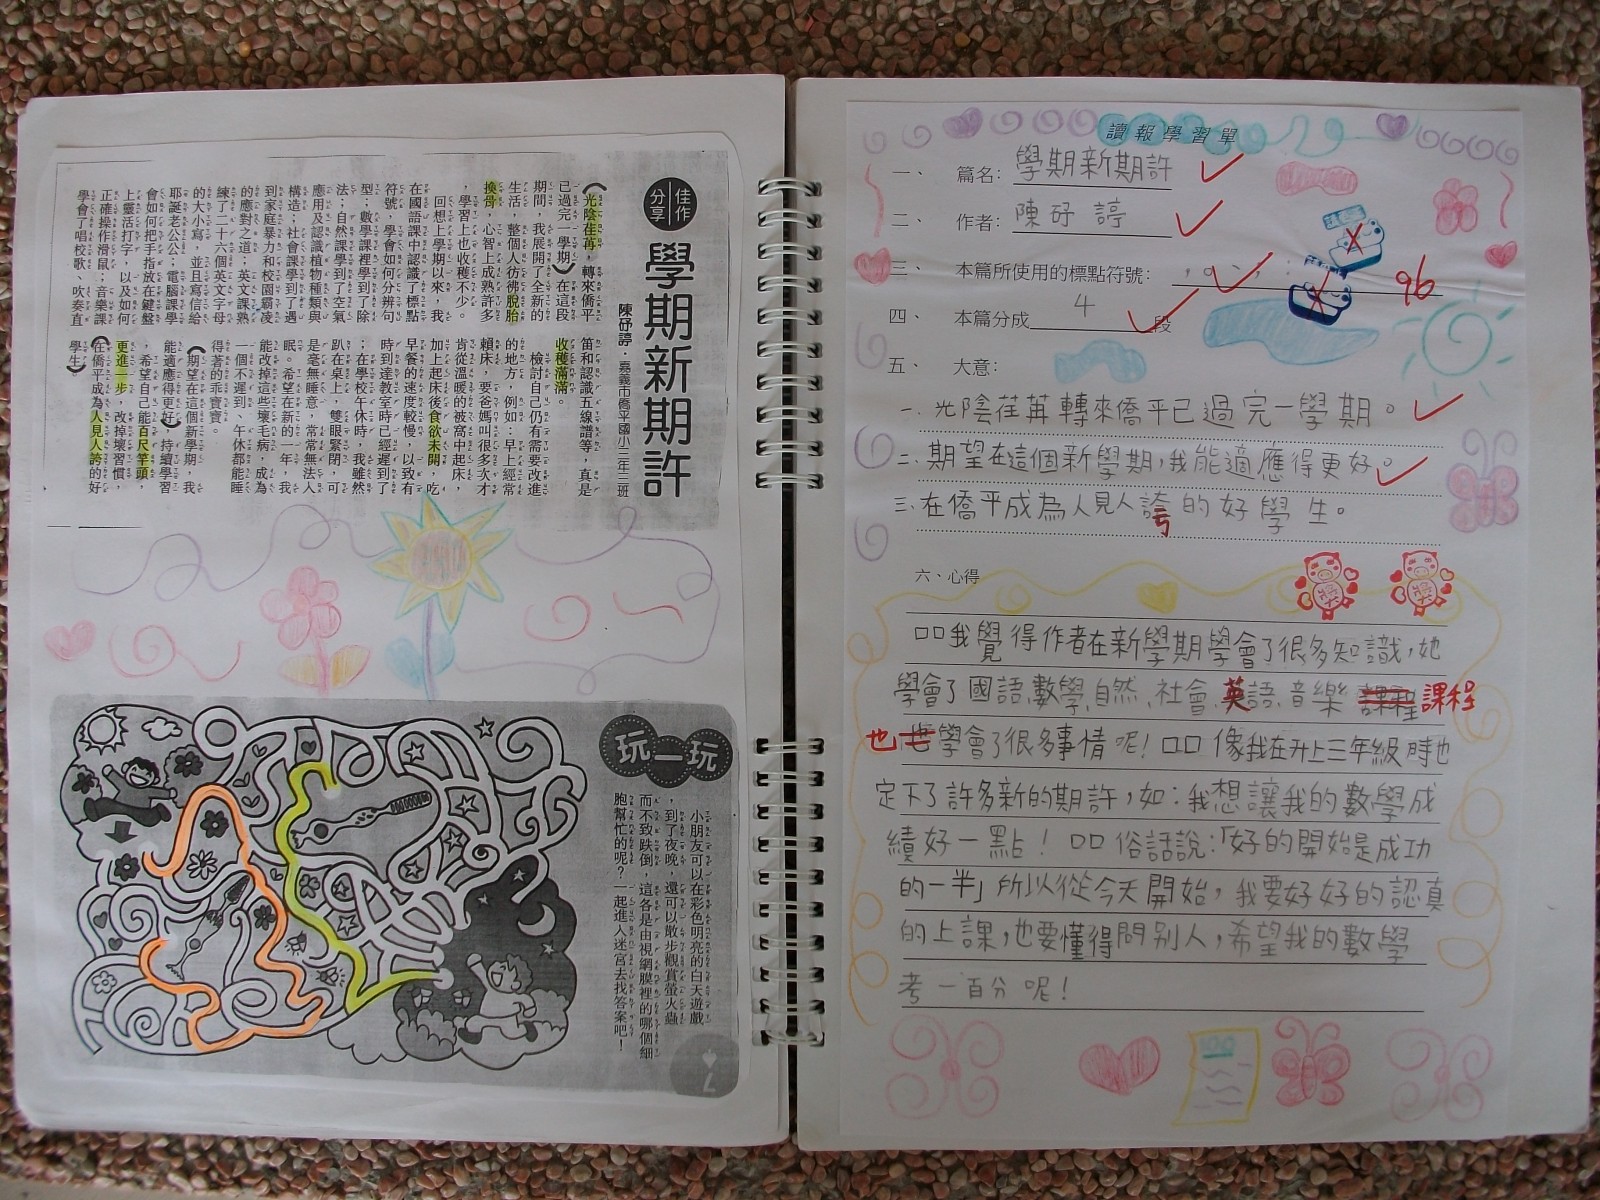 佳作分享
學期新期許
陳砰婷．嘉義市僑平國小三年三班
（光陰荏苒，轉來僑平
已過完一學期）在這段
期間，我展開了全新的
生活，整個人彷彿脫胎
換骨，心智上成熟許多
，學習上也收穫不少。
回想上學期以來，我
在國語課中認識了標點
符號，學會如何分辨句
型；數學課裡學到了除
法；自然課學到了空氣
應用及認識植物種類與
構造；社會課學到了遇
到家庭暴力和校園霸凌
的應對之道；英文課熟
練了二十六個英文字母
的大小寫，並且寫信給
耶誕老公公；電腦課學
會如何把手指放在鍵盤
上靈活打字，以及如何
正確操作滑鼠；音樂課
學會了唱校歌、吹奏直
笛和認識五線譜等，真是
收穫滿滿。
檢討自己仍有需要改進
的地方，例如：早上經常
賴床，要爸媽叫很多次才
肯從溫暖的被窩中起床，
加上起床後食欲未開，吃
早餐的速度較慢，以致有
時到達教室時已經遲到了
；在學校午休時，我雖然
趴在桌上，雙眼緊閉，可
是毫無睡意，常常無法入
眠。希望在新的一年，我
能改掉這些壞毛病，成為
一個不遲到、午休都能睡
得著的乖寶寶。
（期望在這個新學期，我
能適應得更好）持續學習
，希望自己能百尺竿頭，
更進一步，改掉壞習慣，
（在僑平成為人見人誇的好
學生）。
玩一玩
小朋友可以在彩色明亮的白天遊戲
，到了夜晚，還可以散步觀賞螢火蟲
而不致跌倒，這各是由視網膜裡的哪個細
胞幫忙的呢？一起進入迷宮去找答案吧！
讀報學習單
一、篇名：學期新期許
二、作者：陳砰婷
三、本篇所使用的標點符號：
96
四、本篇分成4段
五、大意：
一、光陰荏苒轉來僑平已過完一學期。
二、期望在這個新學期，我能適應得更好。
三、在僑平成為人見人誇的好學生。
六、心得
口口我覺得作者在新學期學會了很多知識，她
學會了國語、數學、自然、社會、英語、音樂課程
也學會了很多事情呢！口口像我在升上三年級時也
定下了許多新的期許，如：我想讓我的數學成
績好一點！口口俗話說：「好的開始是成功
的一半」所以從今天開始，我要好好的認真
的上課，也要懂得問別人，希望我的數學
考一百分呢！
100